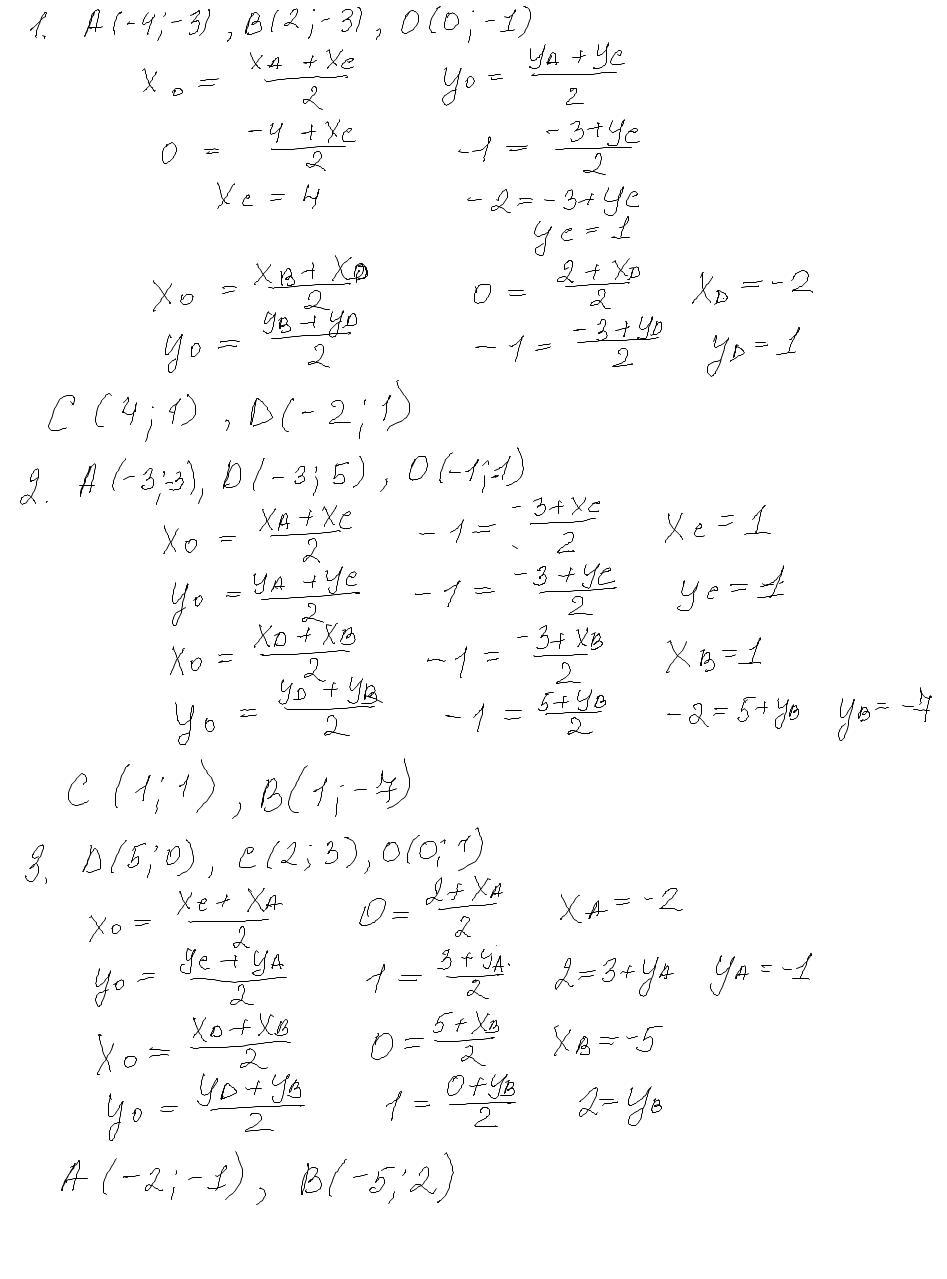 1. A(-4;-3), B(2;-3), O(0;-1)
x₀ = (xA + xC)/2    y₀ = (yA + yC)/2
0 = (-4 + xC)/2    -1 = (-3+yC)/2
xC = 4    -2 = -3+yC
yC = 1
x₀ = (xB + xD)/2    0 = (2 + xD)/2    xD = -2
y₀ = (yB + yD)/2    -1 = (-3+yD)/2    yD = 1
C(4;1), D(-2;1)
2. A(-3;-3), D(-3;5), O(-1;-1)
x₀ = (xA + xC)/2    -1 = (-3+xC)/2    xC = 1
y₀ = (yA + yC)/2    -1 = (-3+yC)/2    yC = 1
x₀ = (xD + xB)/2    -1 = (-3+xB)/2    xB = 1
y₀ = (yD + yB)/2    -1 = (5+yB)/2    -2 = 5+yB    yB = -7
C(1;1), B(1;-7)
3. D(5;0), C(2;3), O(0;1)
x₀ = (xC + xA)/2    0 = (2+xA)/2    xA = -2
y₀ = (yC + yA)/2    1 = (3+yA)/2    2=3+yA    yA = -1
x₀ = (xD + xB)/2    0 = (5+xB)/2    xB = -5
y₀ = (yD + yB)/2    1 = (0+yB)/2    2=yB
A(-2;-1), B(-5;2)